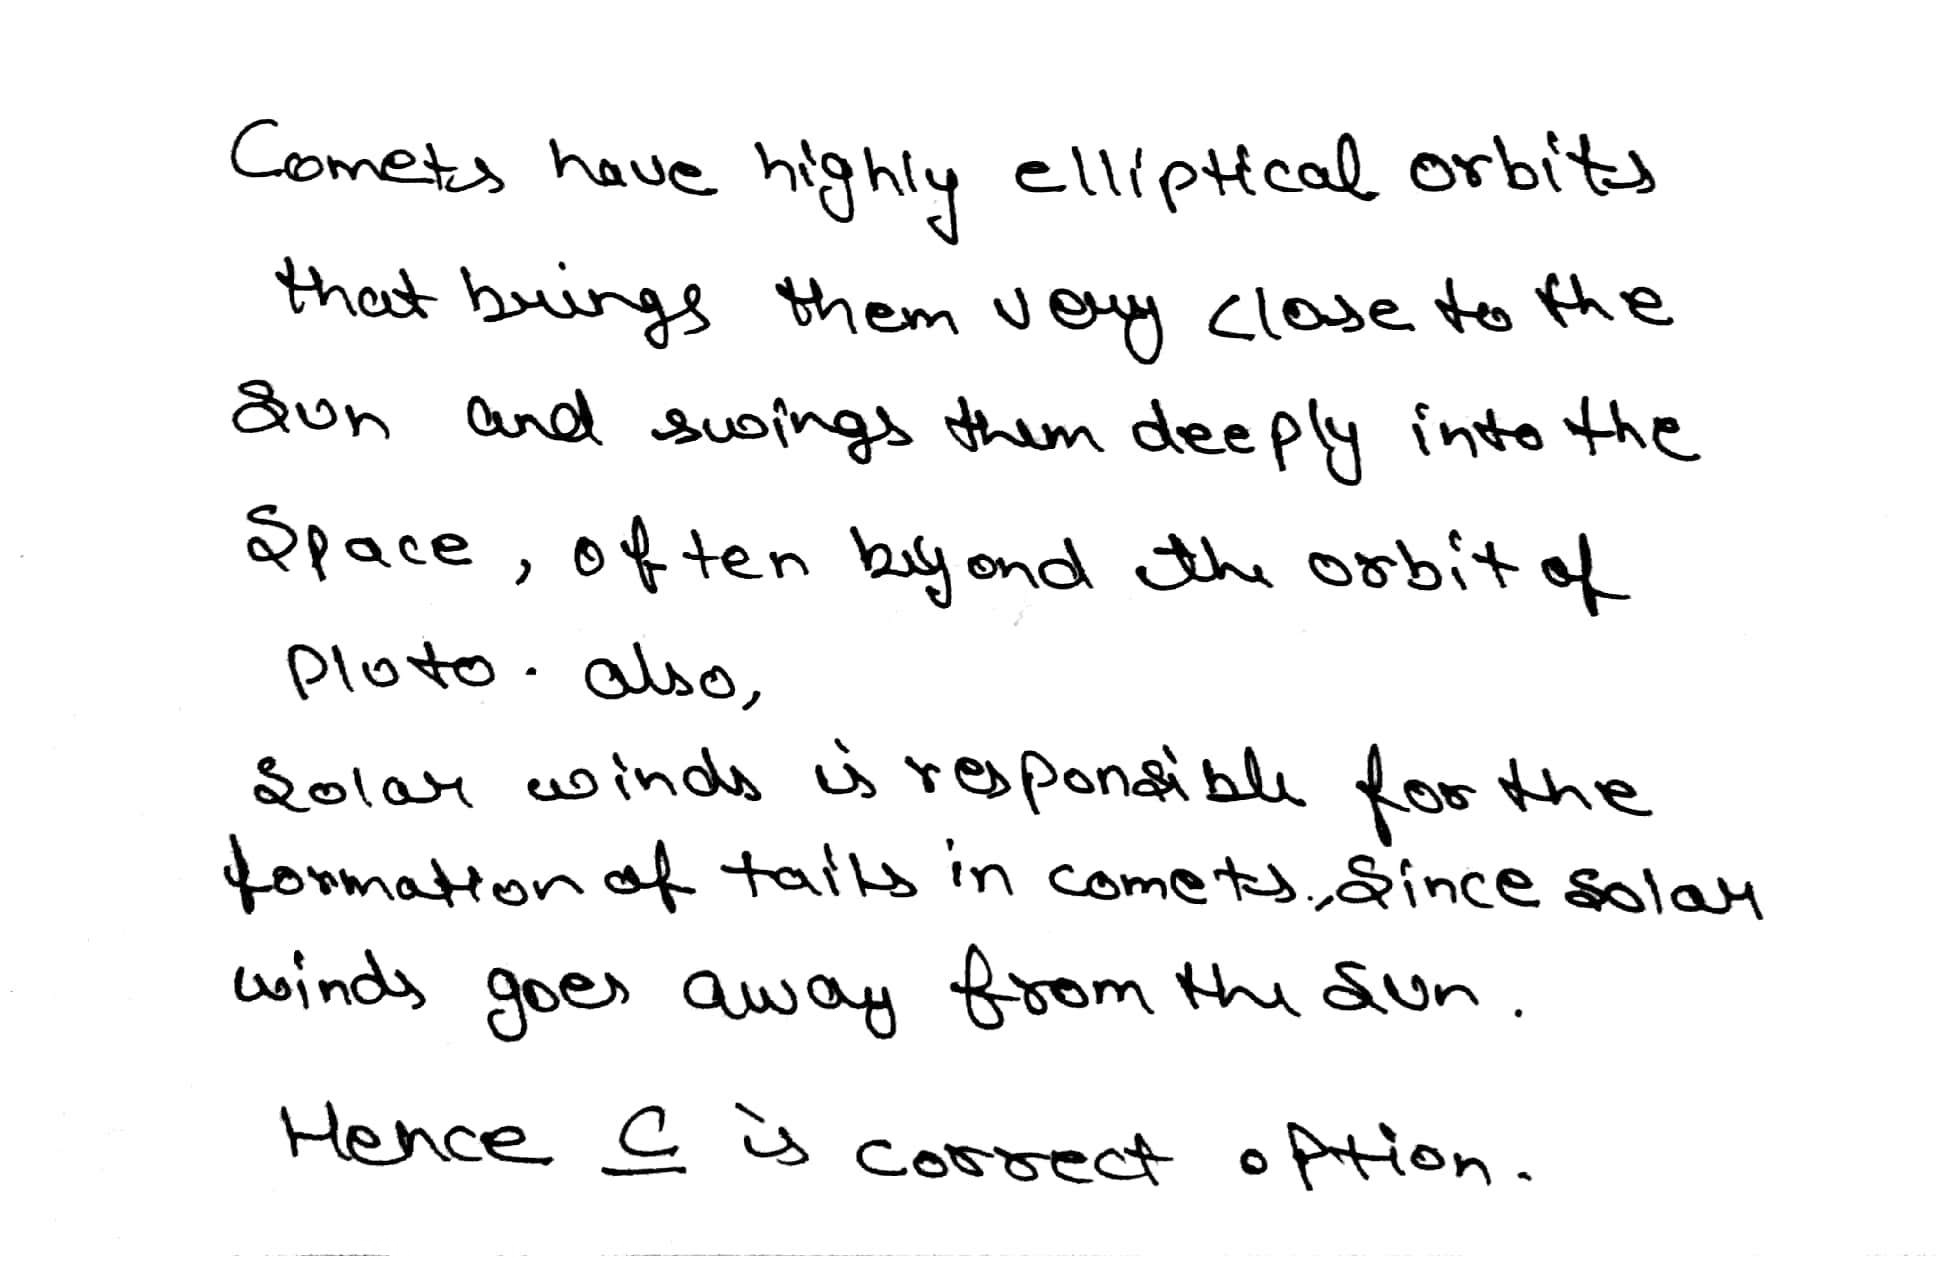 Comets have highly elliptical orbits
that brings them very close to the
Sun and swings them deeply into the
Space, often beyond the orbit of
Pluto. also,
Solar winds is responsible for the
formation of tails in comets., Since solar
winds goes away from the Sun.
Hence C is correct option.